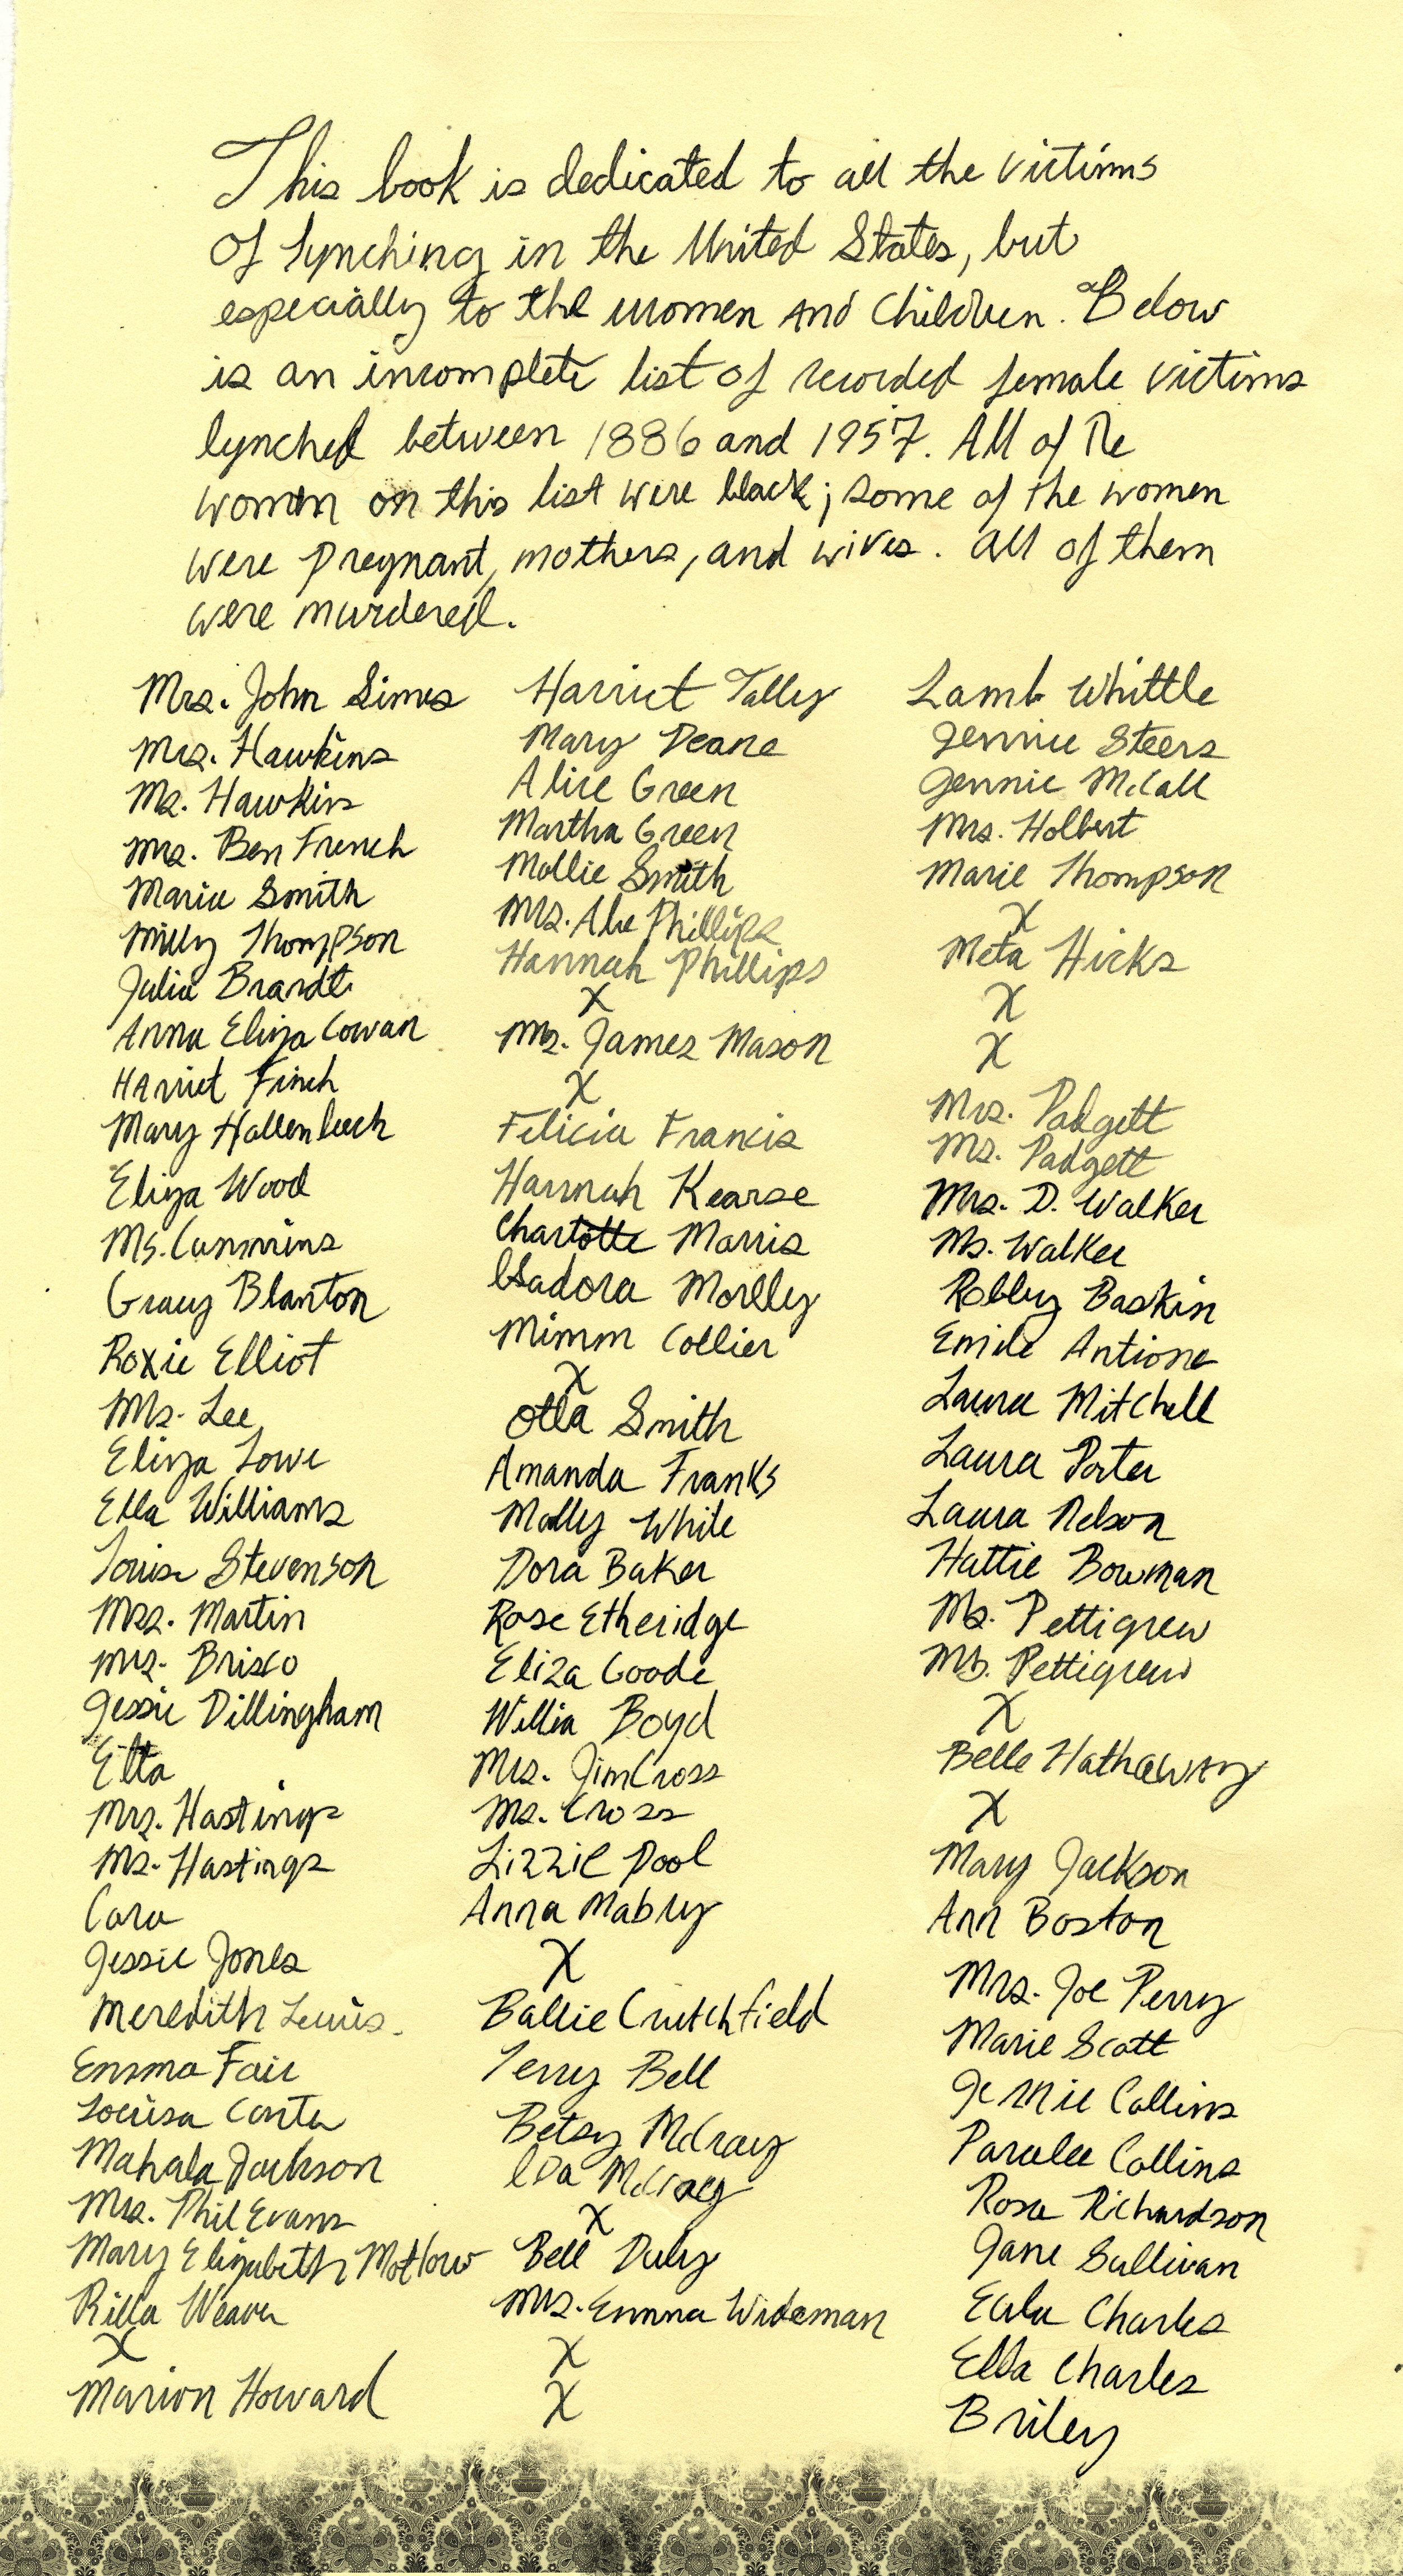 This book is dedicated to all the victims
of lynching in the United States, but
especially to the women and children. Below
is an incomplete list of recorded female victims
lynched between 1886 and 1957. All of the
women on this list were black; some of the women
were pregnant, mothers, and wives. All of them
were murdered.
Mrs. John Simes
Mrs. Hawkins
Ms. Hawkins
Mrs. Ben French
Marie Smith
Milly Thompson
Julia Brandt
Anna Eliza Cowan
Harriet Finch
Mary Hallenbeck
Eliza Wood
Ms. Cummins
Gracy Blanton
Roxie Elliot
Ms. Lee
Eliza Lowe
Ella Williams
Louise Stevenson
Mrs. Martin
Mrs. Brisco
Jessie Dillingham
Etta
Mrs. Hastings
Ms. Hastings
Cara
Jessie Jones
Meredith Lewis.
Emma Fair
Louisa Carter
Mahala Jackson
Mrs. Phil Evans
Mary Elizabeth Motlow
Rilla Weaver
X
Marion Howard
Harriet Talley
Mary Deane
Alice Green
Martha Green
Mollie Smith
Mrs. Abe Phillips
Hannah Phillips
X
Ms. James Mason
X
Felicia Francis
Hannah Kearse
Charlotte Morris
Isadora Morlley
Mimm Collier
X
Otla Smith
Amanda Franks
Molly White
Dora Baker
Rose Etheridge
Eliza Goode
Willia Boyd
Mrs. Jim Cross
Ms. Cross
Lizzie Pool
Anna Mabry
X
Ballie Crutchfield
Terry Bell
Betsy McCray
Ida McCray
X
Bell Duly
Mrs. Emma Wideman
X
X
Lamb Whittle
Jennie Steers
Jennie McCall
Mrs. Holbert
Marie Thompson
X
Meta Hicks
X
X
Mrs. Padgett
Ms. Padgett
Mrs. D. Walker
Ms. Walker
Robby Baskin
Emile Antione
Laura Mitchell
Laura Porter
Laura Nelson
Hattie Bowman
Ms. Pettigrew
Ms. Pettigrew
X
Belle Hathaway
X
Mary Jackson
Ann Boston
Mrs. Joe Perry
Marie Scott
Jennie Collins
Paralee Collins
Rosa Richardson
Jane Sullivan
Eula Charles
Ella Charles
Briley